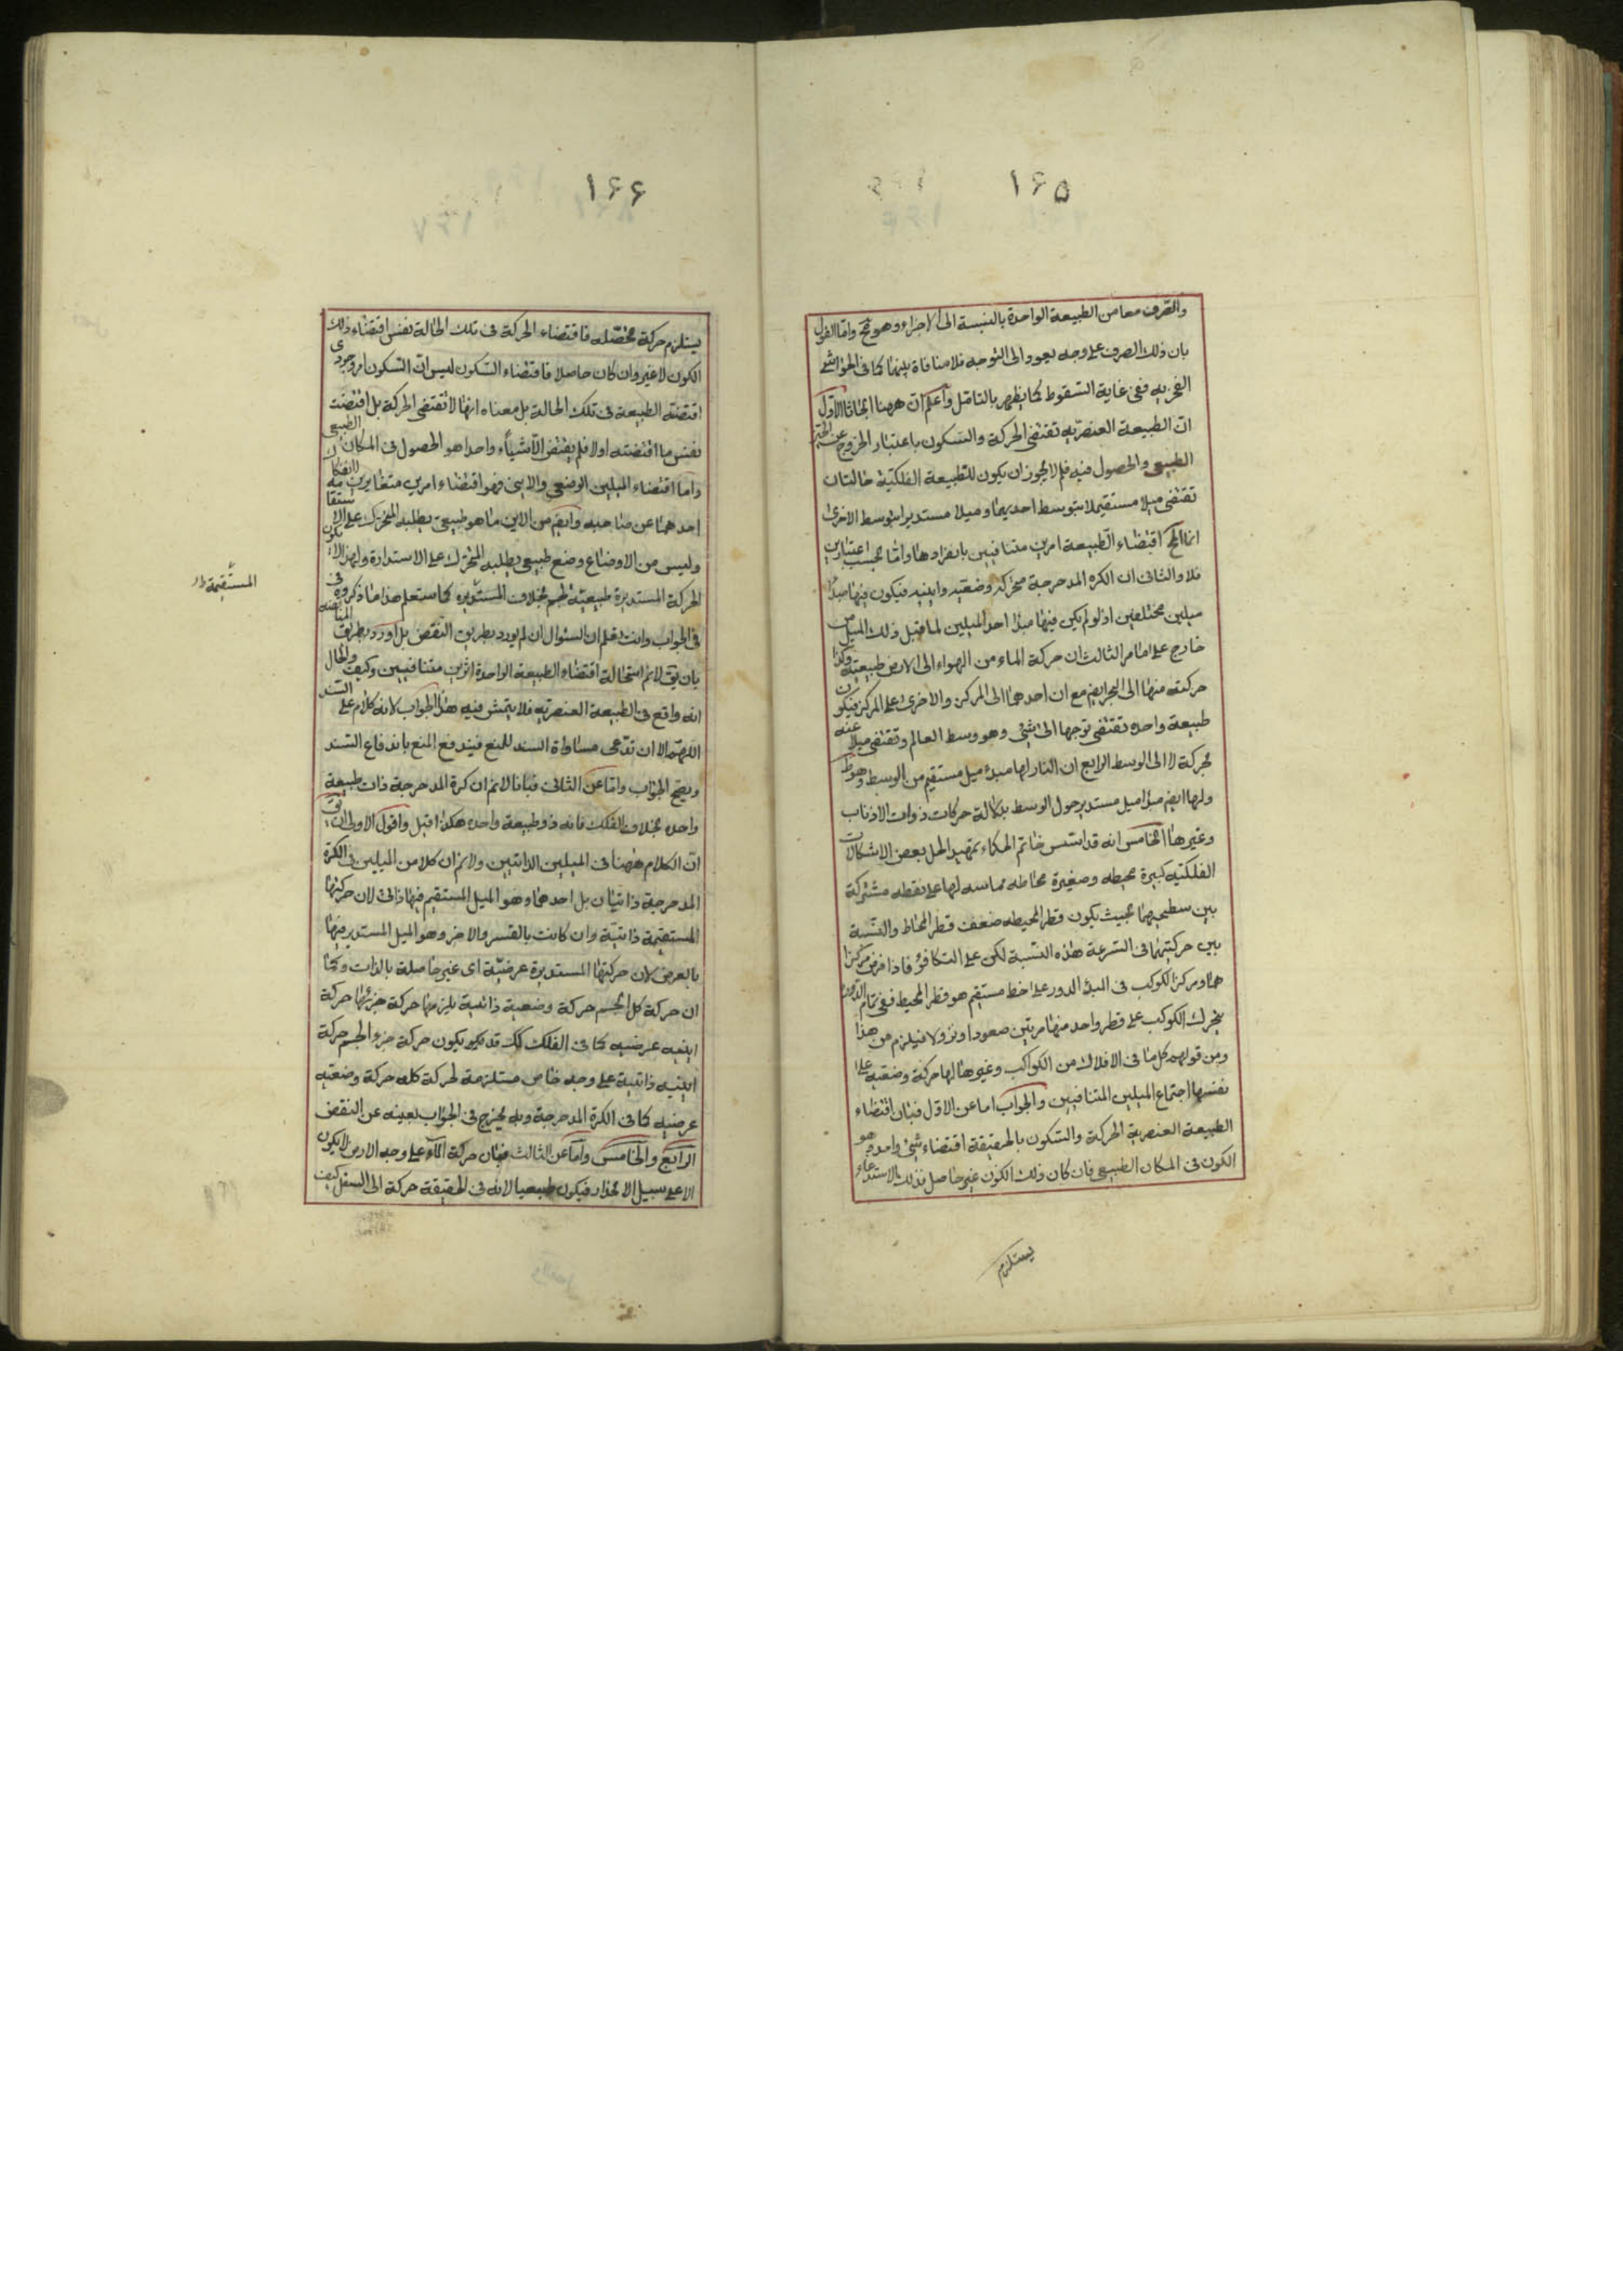 ١۶۵
والصرف معا من الطبيعة الواحدة بالنسبة الى الاجزاء وهو مح واما القول
بان ذلك الصرف على وجه يعود الى التوجه فلا منافاة بينهما كما فى الحواشى
الفخريه ففى غاية السقوط كما يظهر بالتامل واعلم ان ههنا ابحاثا الاول
ان الطبيعة العنصريه تقتضى الحركة والسكون باعتبار الخروج عن الحيز
الطبيعى والحصول فيه فلم لا يجوز ان يكون للطبيعة الفلكية حالتان
تقتضى ميلا مستقيما بتوسط احديهما وميلا مستديرا بتوسط الاخرى
انما المح اقتضاء الطبيعة امرين متنافيين بانفرادها واما بحسب اعتبارين
فلا والثانى ان الكره المدحرجة متحركة وضعيه واينيه فيكون فيها مبدأ
ميلين مختلفين اذ لو لم يكن فيها مبدأ احد الميلين لما قبل ذلك الميل من
خارج على ما مر الثالث ان حركة الماء من الهواء الى الارض طبيعية وكذا
حركته منها الى البحر ايضا مع ان احدهما الى المركز والاخرى على المركز فيكون
طبيعة واحده تقتضى توجها الى شئ وهو وسط العالم وتقتضى ميلا عنه
لحركة لا الى الوسط الرابع ان النار لها مبدء ميل مستقيم من الوسط وهو ظ
ولها ايض مبدأ ميل مستدير حول الوسط بدلالة حركات ذوات الاذناب
وغيرها الخامس انه قد اسس خاتم الحكماء تمهيدا لحل بعض الاشكالات
الفلكية كبيرة محيطه وصغيرة محاطه مماسه لها على نقطه مشتركة
بين سطحيهما بحيث يكون قطر المحيطه ضعف قطر المحاط والنسبة
بين حركتيهما فى السرعة هذه النسبة لكن على التكافؤ فاذا فرض مركزا
هما ومركز الكوكب فى البدؤ الدور على خط مستقيم هو قطر المحيط ففى تمام الدور
يتحرك الكوكب على قطر واحد منها مرتين صعودا ونزولا فيلزم من هذا
ومن قولهم كل ما فى الافلاك من الكواكب وغيرها لها حركة وضعيه على
نفسها اجتماع الميلين المتنافيين والجواب اما عن الاول فبان اقتضاء
الطبيعة العنصرية الحركة والسكون بالحقيقة اقتضاء شئ واحد وهو
الكون فى المكان الطبيعى فان كان ذلك الكون غير حاصل فذلك الاستدعاء
يستلزم
١۶۶
يستلزم حركة محصله فاقتضاء الحركة فى تلك الحالة نفس اقتضاء ذلك
الكون لا غير وان كان حاصلا فاقتضاء السكون ليس ان السكون امر وجودى
اقتضته الطبيعة فى تلك الحالة بل معناه انها لا تقتضى الحركة بل اقتضت
نفس ما اقتضته اولا فلم يقتض الا شيئاء واحدا هو الحصول فى المكان الطبيعى
واما اقتضاء الميلين الوضعى والاينى فهو اقتضاء امرين متغايرين لانفكاك
احدهما عن صاحبه وايض من الاين ما هو طبيعى يطلبه المتحرك على الاستقامة
وليس من الاوضاع وضع طبيعى يطلبه المتحرك على الاستدارة ولهذا لا يكون
الحركة المستديرة طبيعية لجسم بخلاف المستديره كما ستعلم هذا ما ذكروه فى
فى الجواب وانت تعلم ان السئوال ان لم يورد بطريق النقض بل اورد بطريق المناقضه
بان يق لانم استحالة اقتضاء الطبيعة الواحدة اثرين متنافيين وكيف والحال
انه واقع فى الطبيعة العنصريه فلا يتمش فيه هذا الجواب لانه كلام على السند
اللهم الا ان تدعى مساواة السند للمنع فيندفع المنع باندفاع السند
ويصح الجواب واما عن الثانى فبانا لانم ان كرة المدحرجة ذات طبيعة
واحده بخلاف الفلك فانه ذو طبيعة واحده هكذا قيل واقول الاولى ان يق
ان الكلام ههنا فى الميلين الذاتيين ولانم ان كلا من الميلين فى الكرة
المدحرجة ذاتيان بل احدهما وهو الميل المستقيم فيها ذاتى لان حركتها
المستقيمة ذاتية وان كانت بالقسر والاخر وهو الميل المستدير فيها
بالعرض لان حركتها المستديرة عرضية اى غير حاصلة بالذات وكما
ان حركة كل الجسم حركة وضعية ذاتية يلزمها حركة جزئها حركة
اينيه عرضيه كما فى الفلك كك قد يكون حركة جزو الجسم حركة
اينيه ذاتية على وجه خاص مستلزمة لحركة كله حركة وضعيه
عرضيه كما فى الكرة المدحرجة وبه يخرج فى الجواب بعينه عن النقض
الرابع والخامس واما عن الثالث فبان حركة الماء على وجه الارض لا يكون
الا على سبيل الانحدار فيكون طبيعيا لانه فى الحقيقة حركة الى السفل كيف
المستقيمة ظ